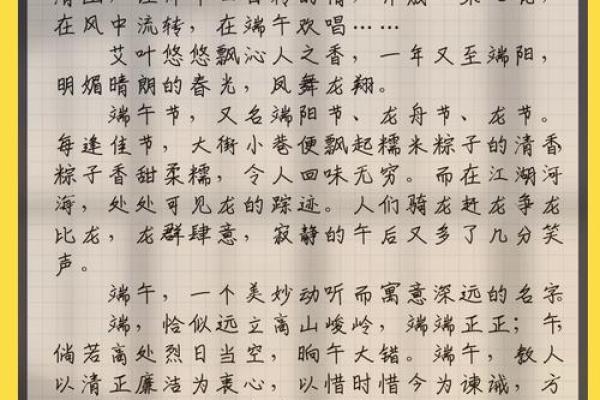 在风中流转，在端午欢唱……
艾叶悠悠飘沁人之香，一年又至端阳，
明媚晴朗的春光，凤舞龙翔。
端午节，又名端阳节、龙舟节、龙节。
每逢佳节，大街小巷便飘起糯米粽子的清香
粽子香甜柔糯，令人回味无穷。而在江湖河
海，处处可见龙的踪迹。人们骑龙赶龙争龙
比龙，龙群肆意，寂静的午后又多了几分笑
声。
端午，一个美妙动听而寓意深远的名字
端，恰似远立高山峻岭，端端正正；午
倘若高处烈日当空，晌午大错。端午，教人
以清正廉洁为衷心，以惜时惜今为谏诫，方